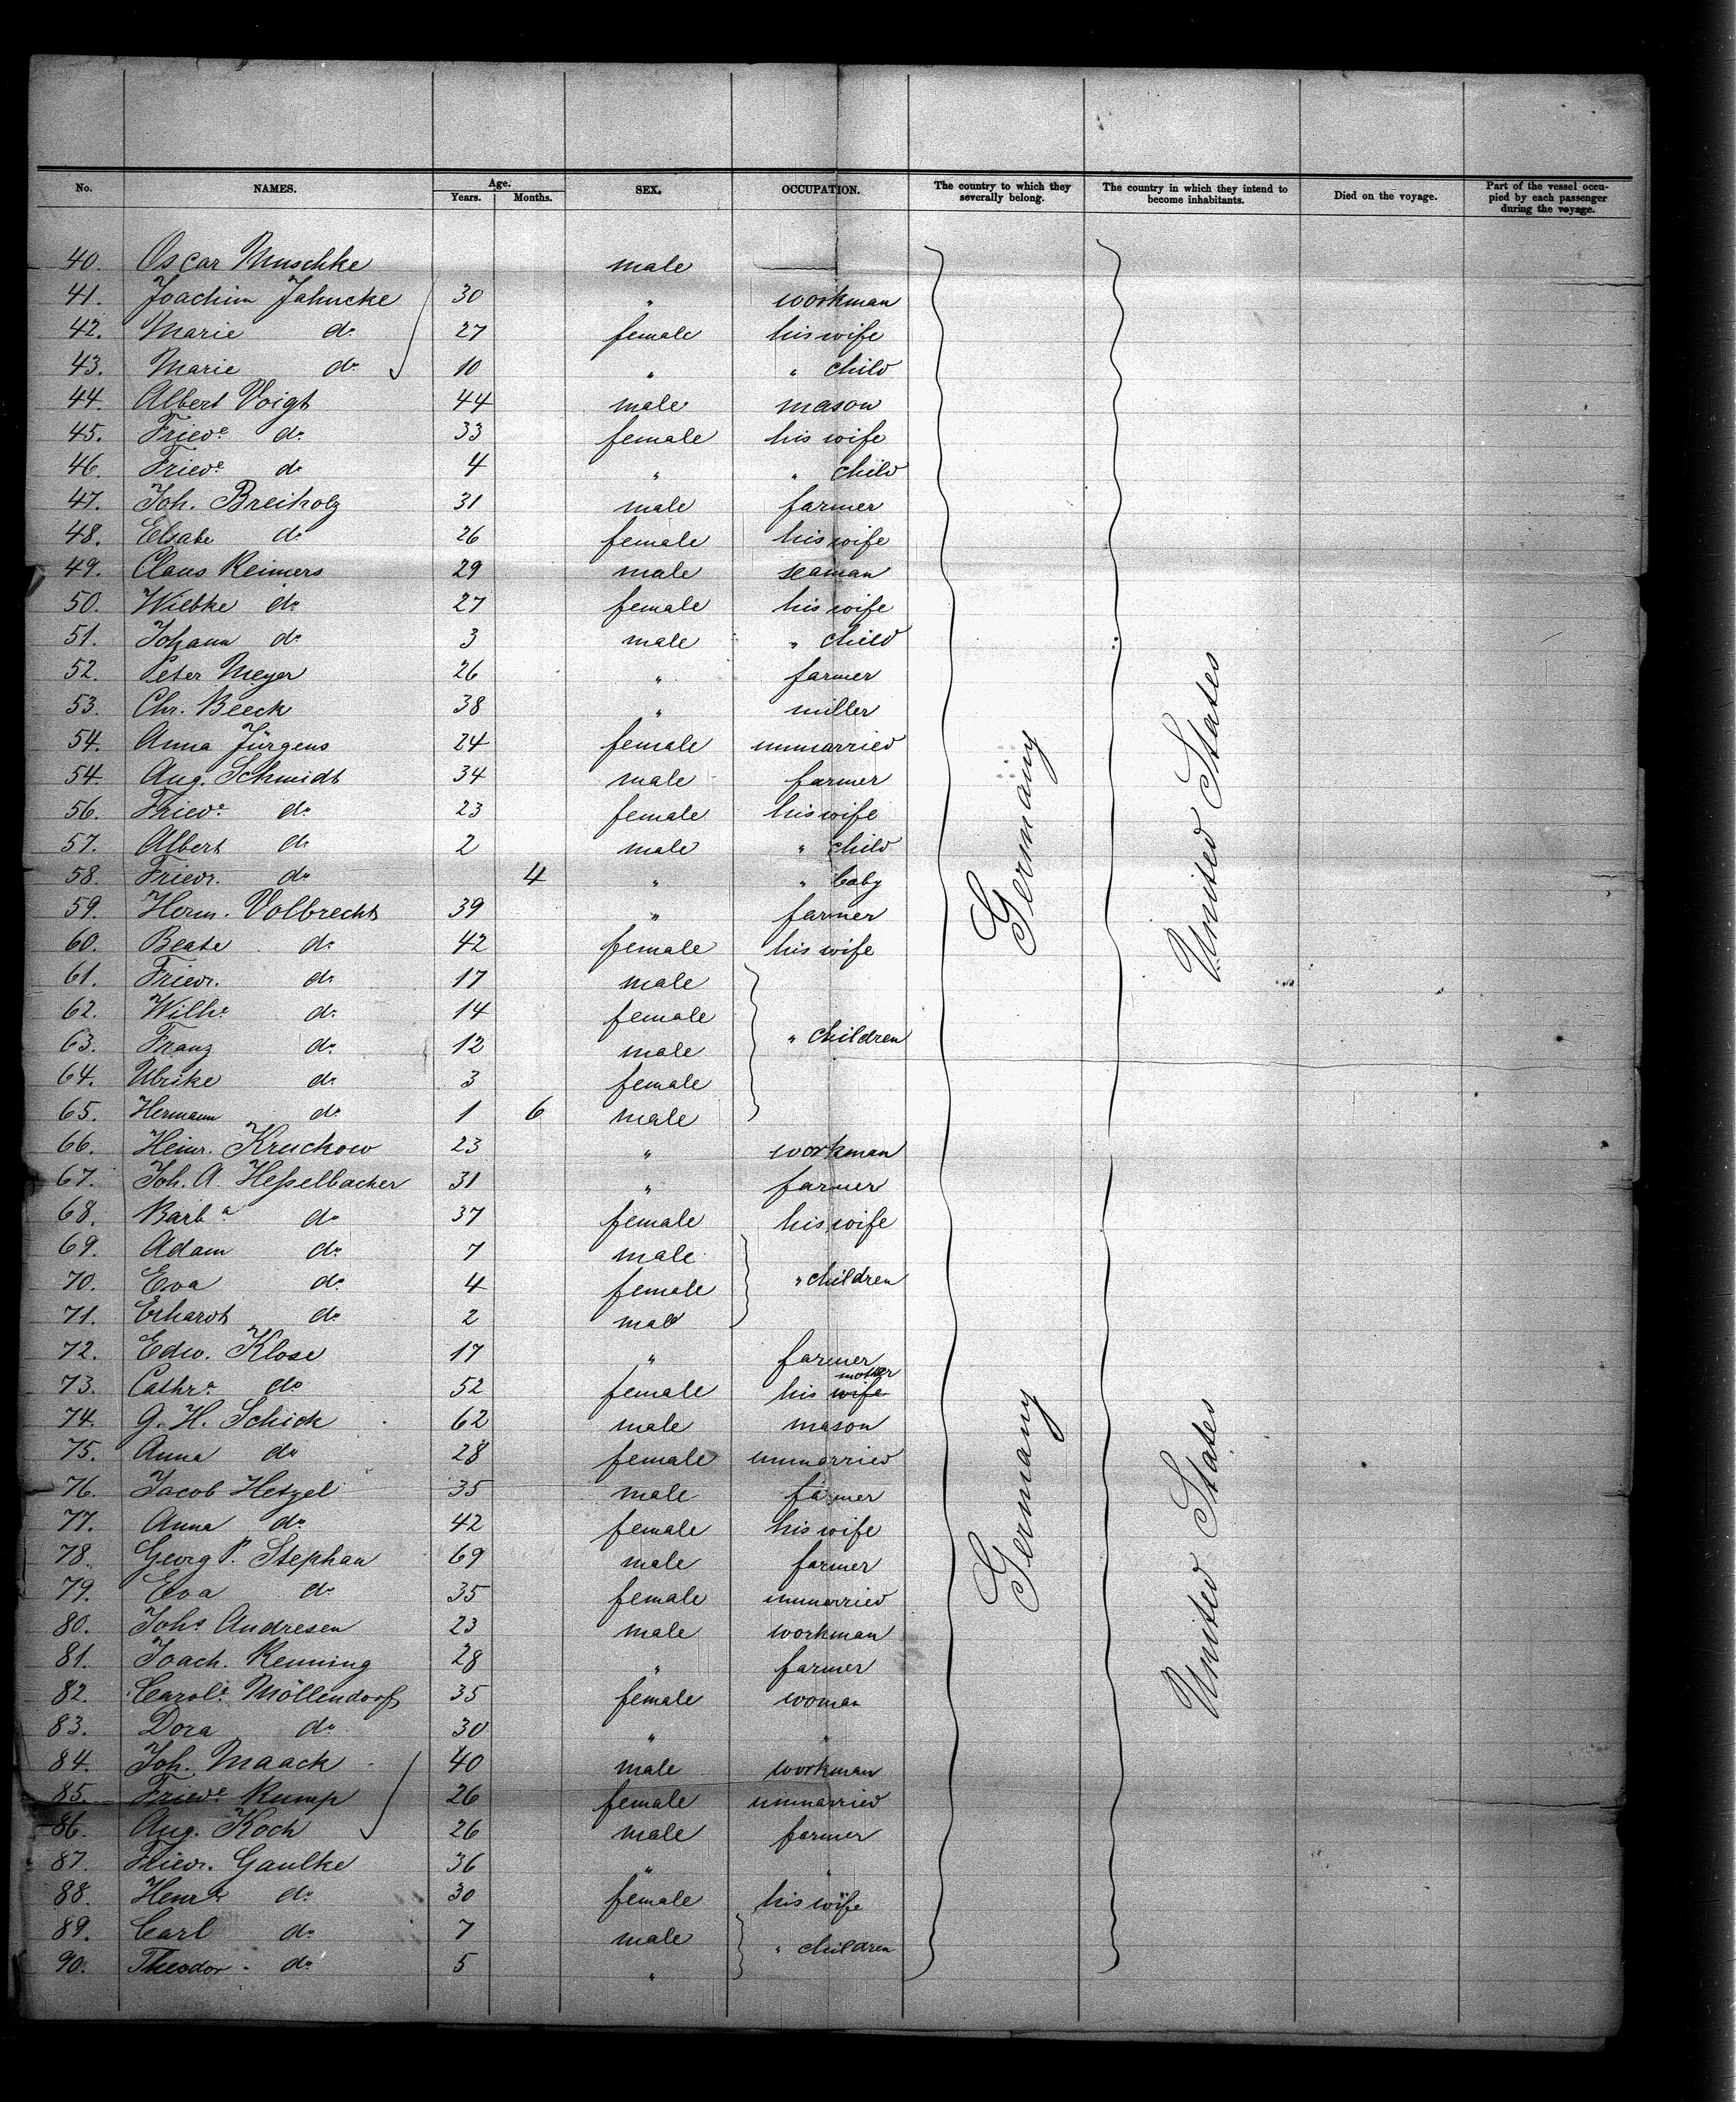 No. NAMES. Age. SEX. OCCUPATION. The country to which they severally belong. The country in which they intend to become inhabitants. Died on the voyage. Part of the vessel occupied by each passenger during the voyage.
Years. Months.
40. Oscar Muschke male
41. Joachim Jahncke 30 " workman
42. Marie do 27 female his wife
43. Marie do 10 " " child
44. Albert Voigt 44 male mason
45. Friede do 33 female his wife
46. Friede do 4 " " child
47. Joh. Breiholz 31 male farmer
48. Elsabe do 26 female his wife
49. Claus Reimers 29 male seaman
50. Wiebke do 27 female his wife
51. Johann do 3 male " child
52. Peter Meyer 26 " farmer
53. Chr. Beeck 38 " miller
54. Anna Jürgens 24 female unmarried
54. Aug. Schmidt 34 male farmer
56. Friede do 23 female his wife
57. Albert do 2 male " child
58. Friedr. do 4 " " baby
59. Herm. Volbrecht 39 " farmer
60. Beate do 42 female his wife
61. Friedr. do 17 male
62. Wilhe do 14 female
63. Franz do 12 male " children
64. Ulrike do 3 female
65. Hermann do 1 6 male
66. Heinr. Kruckow 23 " workman
67. Joh. A. Heßelbacher 31 " farmer
68. Barba do 37 female his wife
69. Adam do 7 male
70. Eva do 4 female " children
71. Erhardt do 2 male
72. Edw. Klose 17 " farmer
73. Cathra do 52 female his wife mother
74. G. H. Schick 62 male mason
75. Anna do 28 female unmarried
76. Jacob Hetzel 35 male farmer
77. Anna do 42 female his wife
78. Georg P. Stephan 69 male farmer
79. Eva do 35 female unmarried
80. Johs Andresen 23 male workman
81. Joach. Renning 28 " farmer
82. Carole Möllendorf 35 female woman
83. Dora do 30 " "
84. Joh. Maack 40 male workman
85. Friede Rump 26 female unmarried
86. Aug. Koch 26 male farmer
87. Friedr. Gaulke 36 " "
88. Henre do 30 female his wife
89. Carl do 7 male " children
90. Theodor do 5 "
Germany
United States
Germany
United States